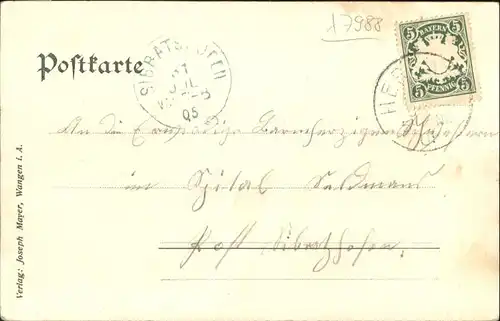 x7988
Postkarte
SIBRATSHOFEN
JUL
05
HE
BAYERN
5 5
PFENNIG
5 5
An die Ehrwürdige Barmherzigen Schwestern
im Spital
Post Sibratshofen.
Verlag: Joseph Mayer, Wangen i. A.